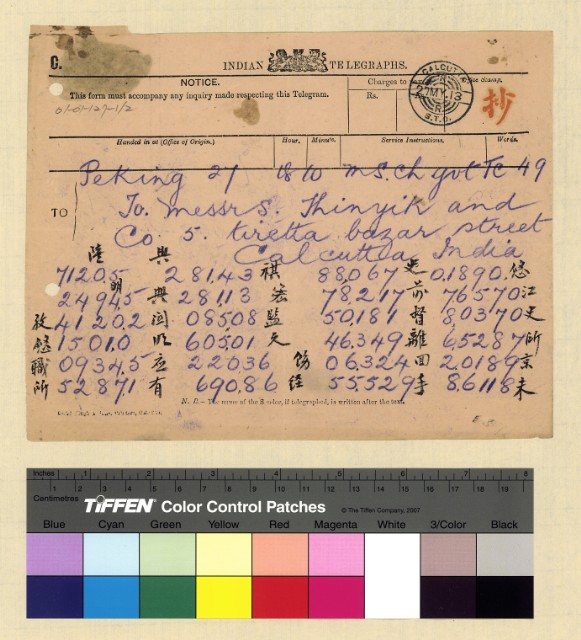 C.
INDIAN TELEGRAPHS.
NOTICE.
This form must accompany any inquiry made respecting this Telegram.
Charges to
Office Stamp.
Rs.
CALCUT
27MY.13
G.T.O.
抄
Handed in at (Office of Origin).
Hour.
Minute.
Service Instructions.
Words.
Peking 27 18 10 M.S. Ch govt Tc 49
TO
To. Messrs. Thinyik and
Co 5. tiretta bazar street
Calcutta India
陸 興 祺 吏 悠
71205 28143 88067 01890
明 興 宏 前 江
24945 28113 78217 76570
效 國 監 督 吏
41202 08508 50181 80370
悠 以 久 離 所
15010 60501 46349 65287
職 应 飭 回 京
09345 22036 06324 20189
所 有 经 手 未
52871 69086 55529 86118
N. B.—The name of the Sender, if telegraphed, is written after the text.
Inches 1 2 3 4 5 6 7 8
Centimetres 1 2 3 4 5 6 7 8 9 10 11 12 13 14 15 16 17 18 19
TIFFEN Color Control Patches
© The Tiffen Company, 2007
Blue Cyan Green Yellow Red Magenta White 3/Color Black